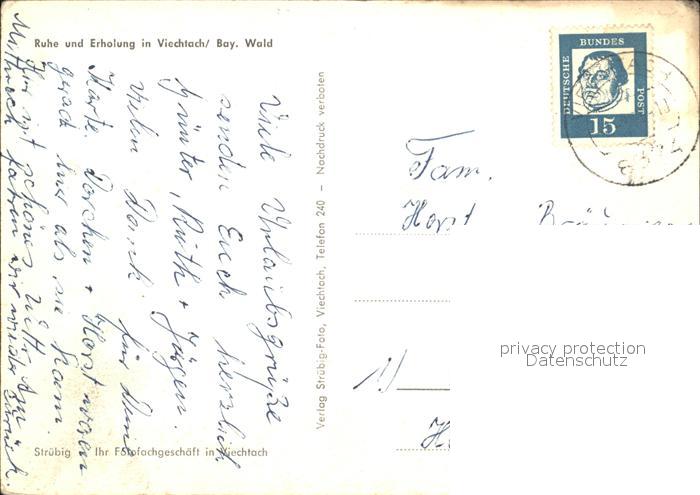 Ruhe und Erholung in Viechtach/ Bay. Wald
Viele Urlaubsgrüße
senden Euch herzlich
Günter, Ruth + Jürgen.
Vielen Dank für Deine
Karte. Dorchen + Horst waren
gerade hier als sie kam.
Hier ist schönes Wetter
Mittwoch fahren wir wieder zurück
Strübig Ihr Fotofachgeschäft in Viechtach
Verlag Strübig-Foto, Viechtach, Telefon 240 – Nachdruck verboten
DEUTSCHE
BUNDES
POST
15
Fam.
Horst
privacy protection
Datenschutz